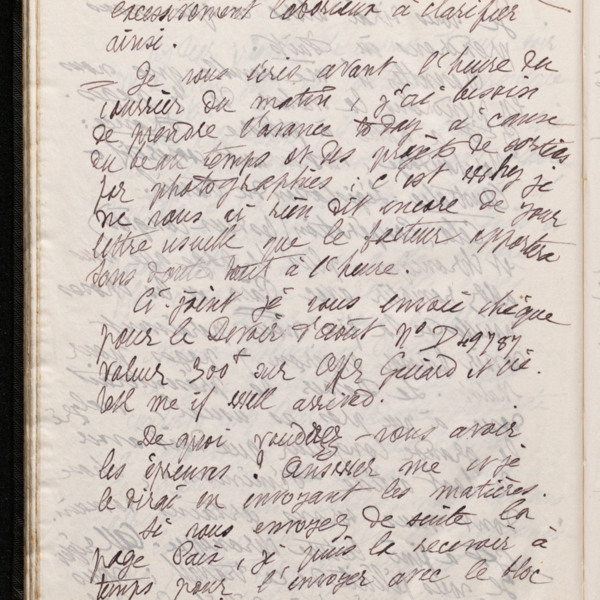 excessivement laborieux à clarifier
ainsi.
Je vous écris avant l'heure du
courrier du matin, j'ai besoin
de prendre l'avance to day à cause
du beau temps et des projets de sorties
for photographies ; c'est why je
ne vous ai rien dit encore de your
lettre usuelle que le facteur apportera
sans doute tout à l'heure.
Ci-joint je vous envoie chèque
pour le Devoir d'août n° D 49787
valeur 300f sur Guiard et Cie.
Tell me if well arrived.
De quoi voudriez-vous avoir
les épreuves ? Answer me et je
le dirai en envoyant les matières.
Si vous envoyez de suite la
page Paix, je puis la recevoir à
temps pour l'envoyer avec le bloc